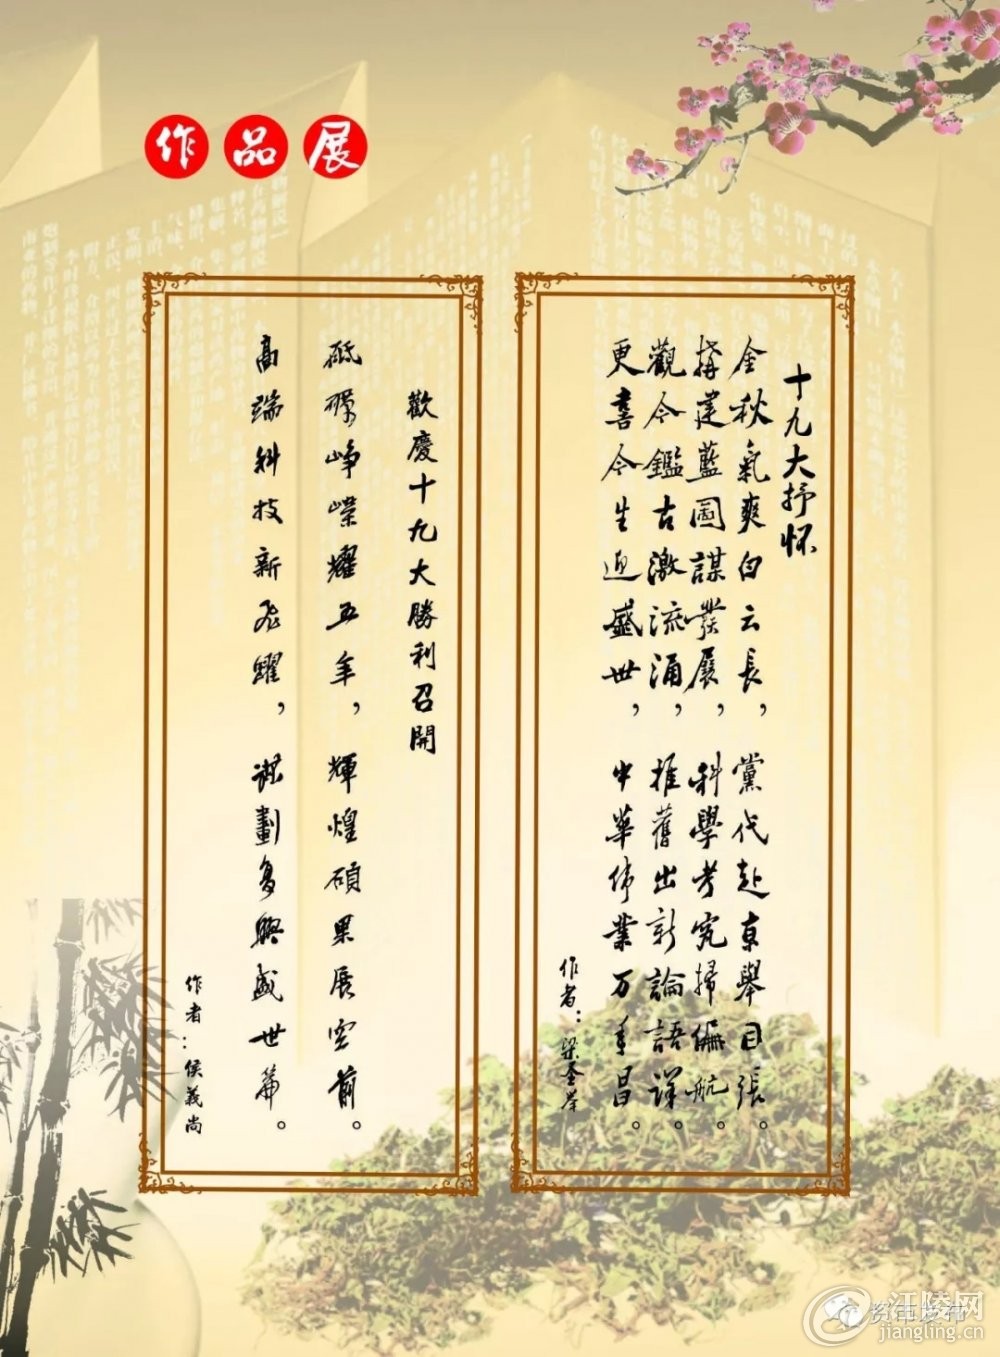 作品展
十九大抒怀
金秋氣爽白云長，黨代赴京舉目張。
搆建藍圖謀發展，科學考究掃偏航。
觀今鑑古激流涌，推舊出新論語詳。
更書今生迎盛世，中華偉業万年昌。
作者：梁圣举
歡慶十九大勝利召開
砥礪峥嶸耀五年，輝煌碩果展空前。
高端科技新飛躍，謀劃多興盛世篇。
作者：侯義尚
资市发布
江陵网
jiangling.cn